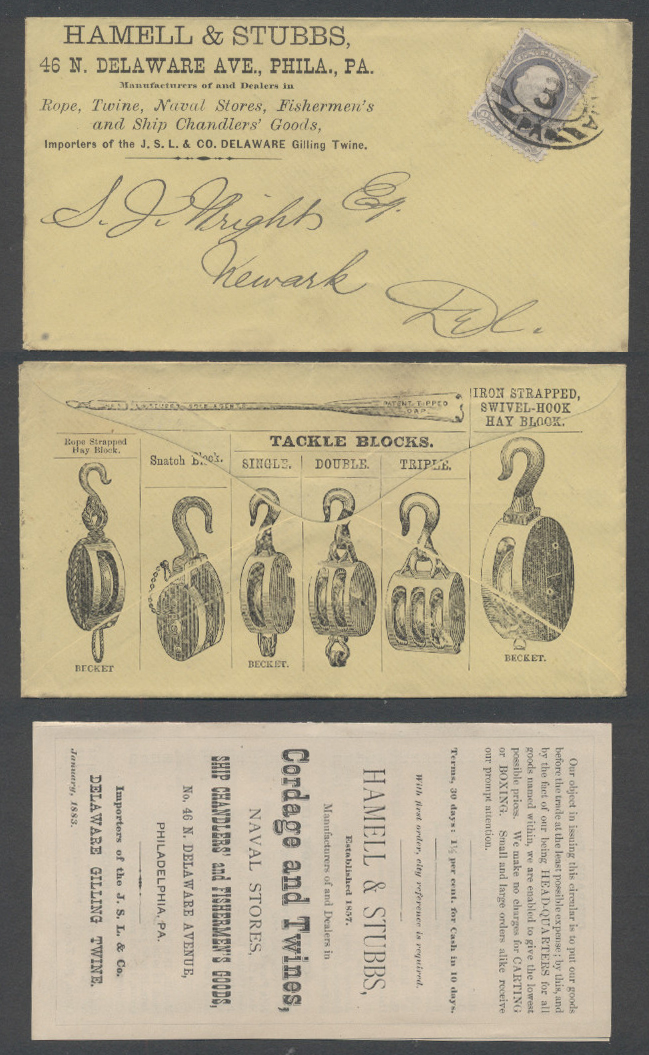 HAMELL & STUBBS,
46 N. DELAWARE AVE., PHILA., PA.
Manufacturers of and Dealers in
Rope, Twine, Naval Stores, Fishermen's
and Ship Chandlers' Goods,
Importers of the J. S. L. & CO. DELAWARE Gilling Twine.
3
PA
S. J. Wright Esq.
Newark
Del.
PATENT-TIPPED
OAR.
IRON STRAPPED,
SWIVEL-HOOK
HAY BLOCK.
Rope Strapped
Hay Block.
Snatch Block.
TACKLE BLOCKS.
SINGLE. DOUBLE. TRIPLE.
BECKET
BECKET.
BECKET.
Our object in issuing this circular is to put our goods
before the trade at the least possible expense; by this, and
by the fact of our being HEAD-QUARTERS for all
goods named within, we are enabled to give the lowest
possible prices. We make no charges for CARTING
or BOXING. Small and large orders alike receive
our prompt attention.
Terms, 30 days: 1½ per cent. for Cash in 10 days.
With first order, city reference is required.
HAMELL & STUBBS,
Established 1857.
Manufacturers of and Dealers in
Cordage and Twines,
NAVAL STORES,
SHIP CHANDLERS' and FISHERMEN'S GOODS,
No. 46 N. DELAWARE AVENUE,
PHILADELPHIA, PA.
Importers of the J. S. L. & Co.
DELAWARE GILLING TWINE.
January, 1883.